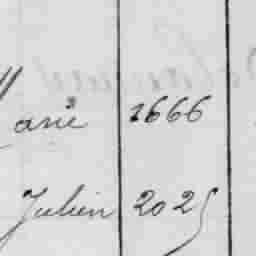 Marie 1666
Julien 2025